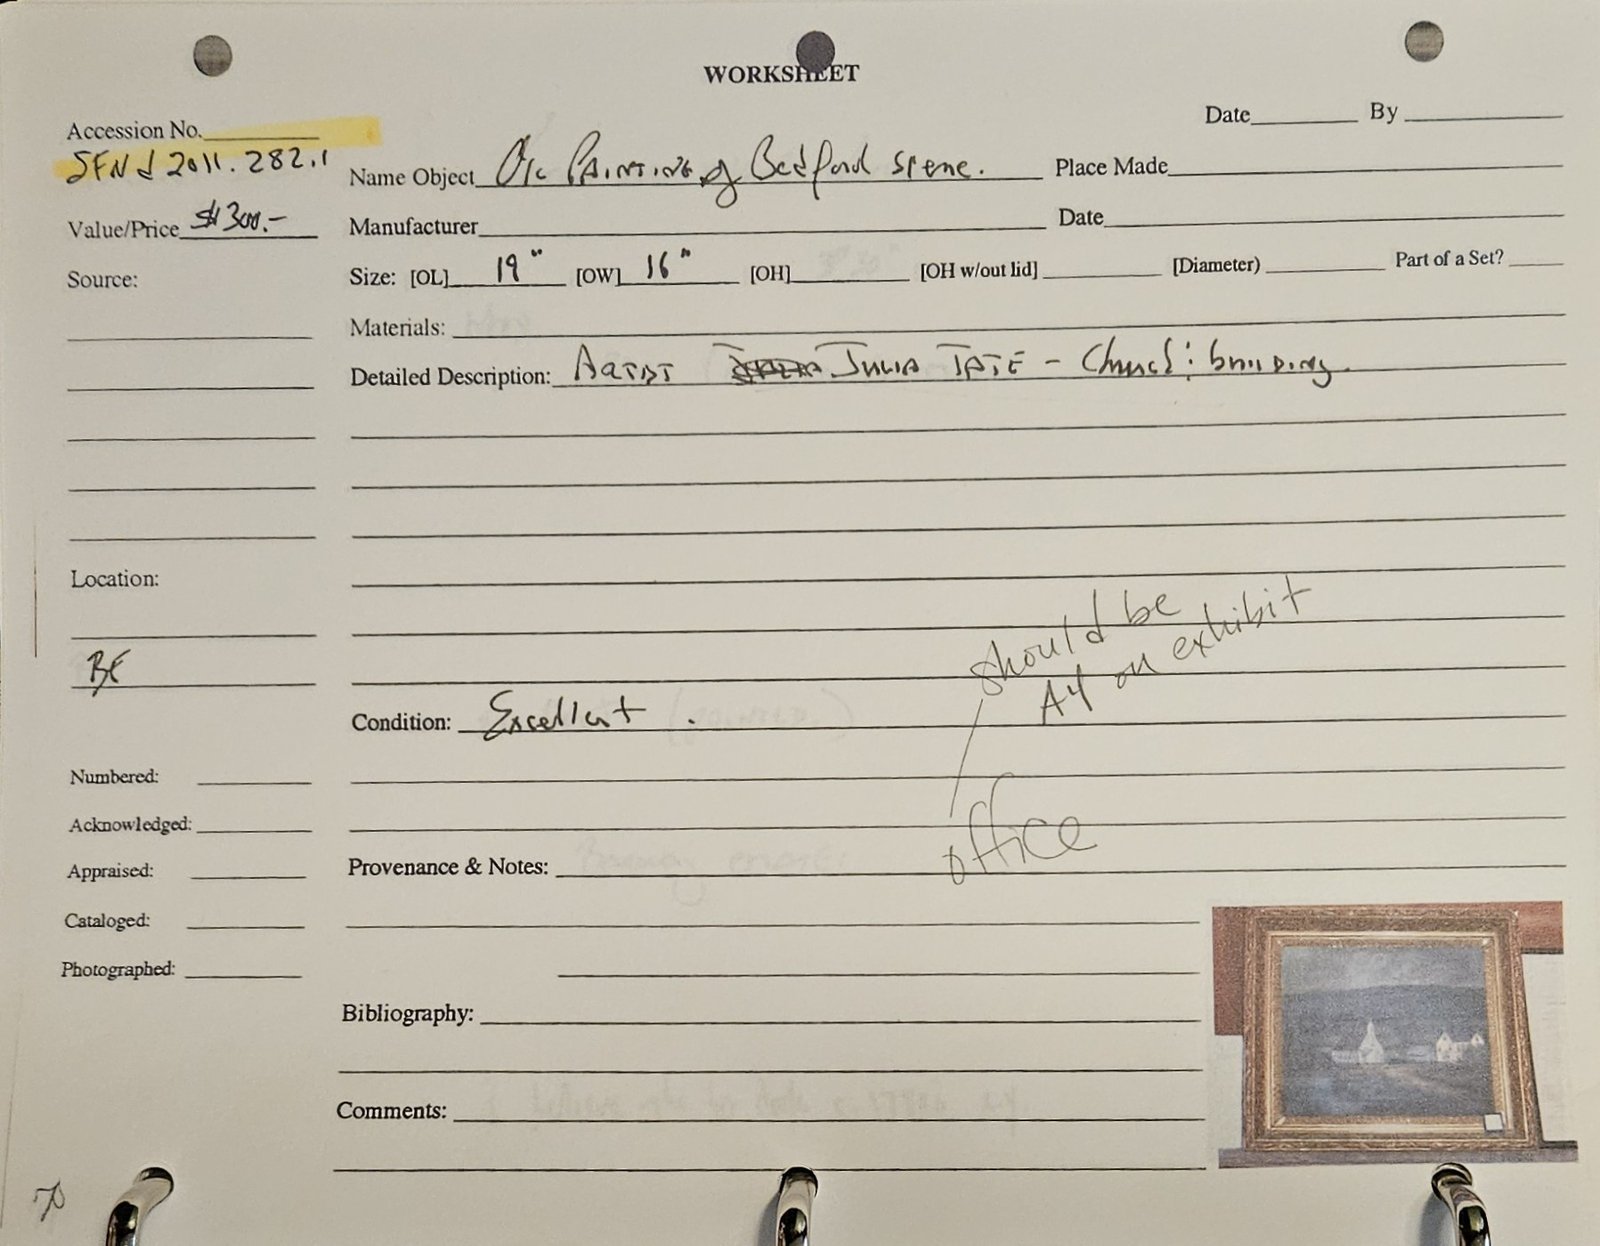 WORKSHEET
Date By
Accession No.
SFN d 2011.282.1
Name Object Oil Painting of Bedford scene. Place Made
Value/Price $300.-
Manufacturer Date
Source:
Size: [OL] 19" [OW] 16" [OH] [OH w/out lid] [Diameter) Part of a Set?
Materials:
Detailed Description: Artist Julia Tate - Church : building
Location:
BE
should be
A4 on exhibit
Condition: Excellent .
Numbered:
Acknowledged:
office
Appraised:
Provenance & Notes:
Cataloged:
Photographed:
Bibliography:
Comments: